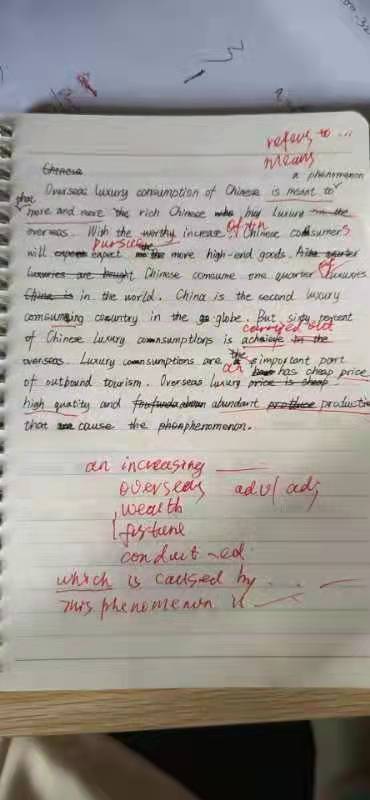 refers to ...
means
Chinese
a phenomenon
Overseas luxury consumption of Chinese is meant to
that
more and more the rich Chinese who buy luxury in the
overseas. With the worthy increase, Chinese consumers
of in
pursue
will expect expect the more high-end goods. A quarter
of
luxuries are bought Chinese consume one quarter luxuries
China is in the world. China is the second luxury
comsuming country in the go globe. But sixty percent
carried out
of Chinese luxury comsumptions is achieve in the
overseas. Luxury comsumptions are the important part
an
has cheap price
of outbound tourism. Overseas luxury price is cheap
high quality and abundant produce production
that cause the phenomenon.
an increasing
overseas adv/adj
wealth
fortune
conduct -ed.
which is caused by . . .
This phenomenon is